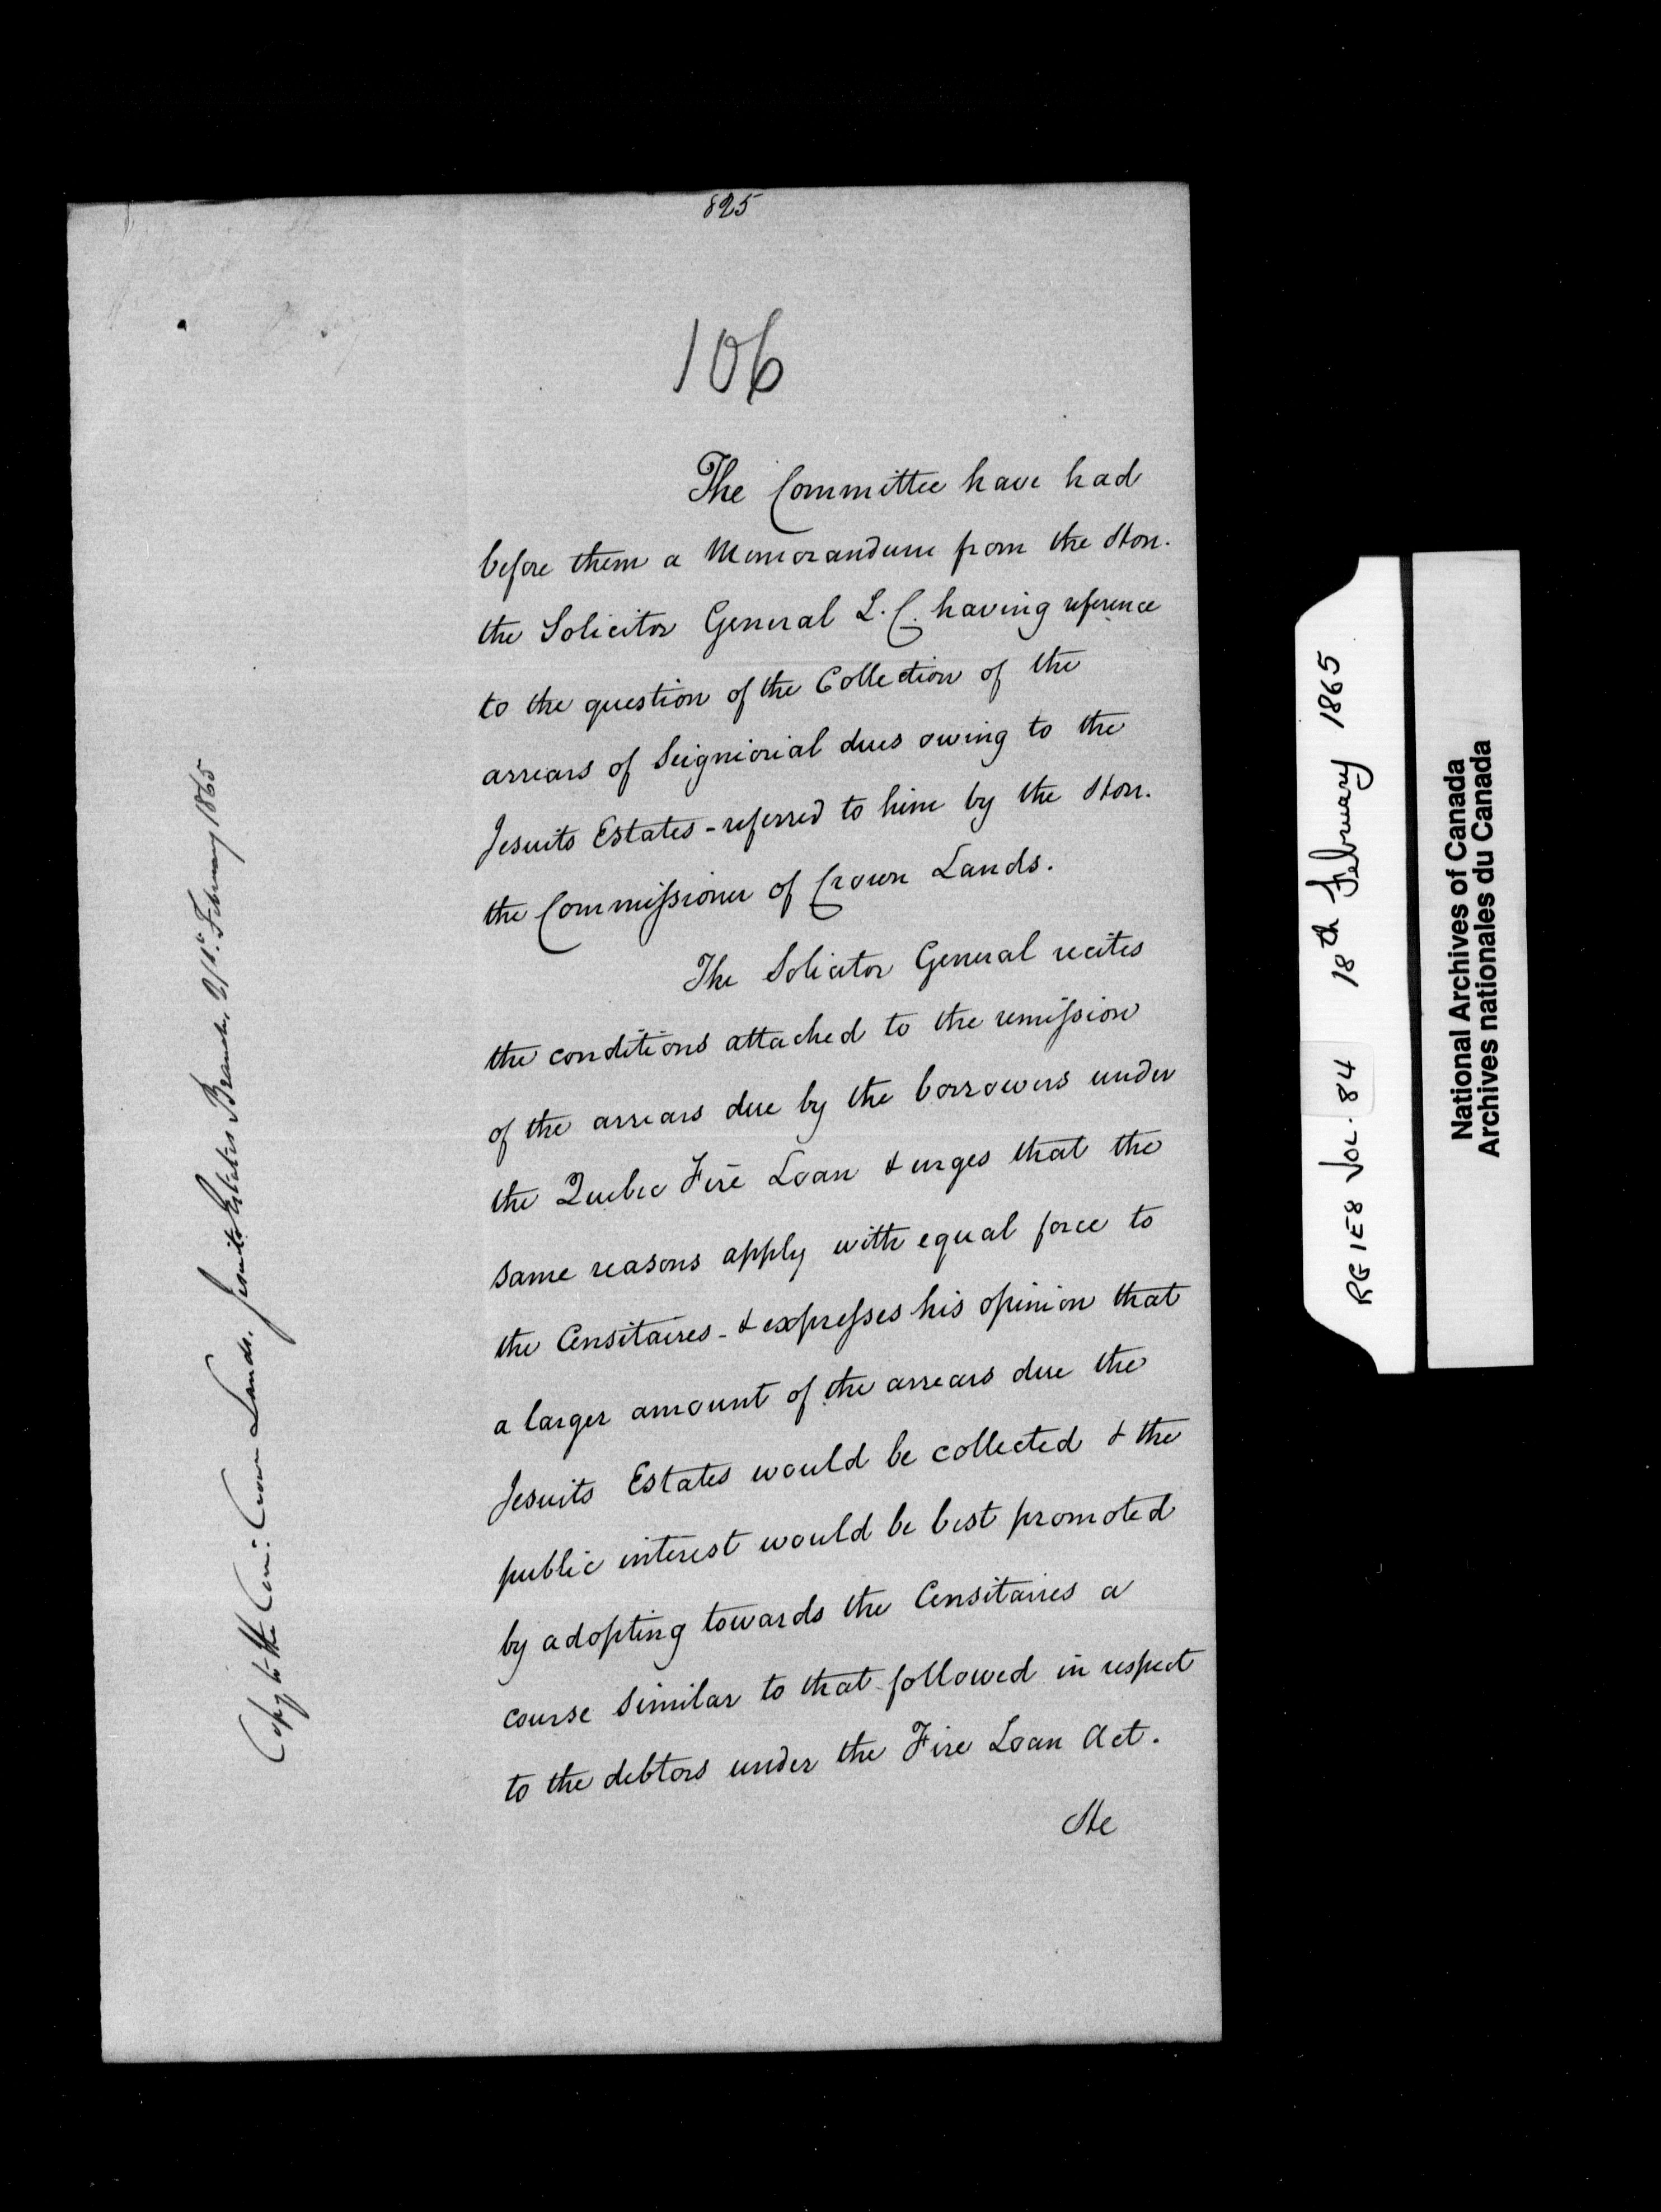 825
106
The Committee have had
before them a Memorandum from the Hon.
the Solicitor General L.C. having reference
to the question of the Collection of the
arrears of Seigniorial dues owing to the
Jesuits Estates - referred to him by the Hon.
the Commissioner of Crown Lands.
The Solicitor General recites
the conditions attached to the remission
of the arrears due by the borrowers under
the Quebec Fire Loan & urges that the
same reasons apply with equal force to
the Censitaires - & expresses his opinion that
a larger amount of the arrears due the
Jesuits Estates would be collected & the
public interest would be best promoted
by adopting towards the Censitaires a
course similar to that followed in respect
to the debtors under the Fire Loan Act.
He
Copy to the Com: Crown Lands. Jesuits Estates Branch, 21st. February 1865
RG1E8 VOL. 84 18th February 1865
National Archives of Canada
Archives nationales du Canada